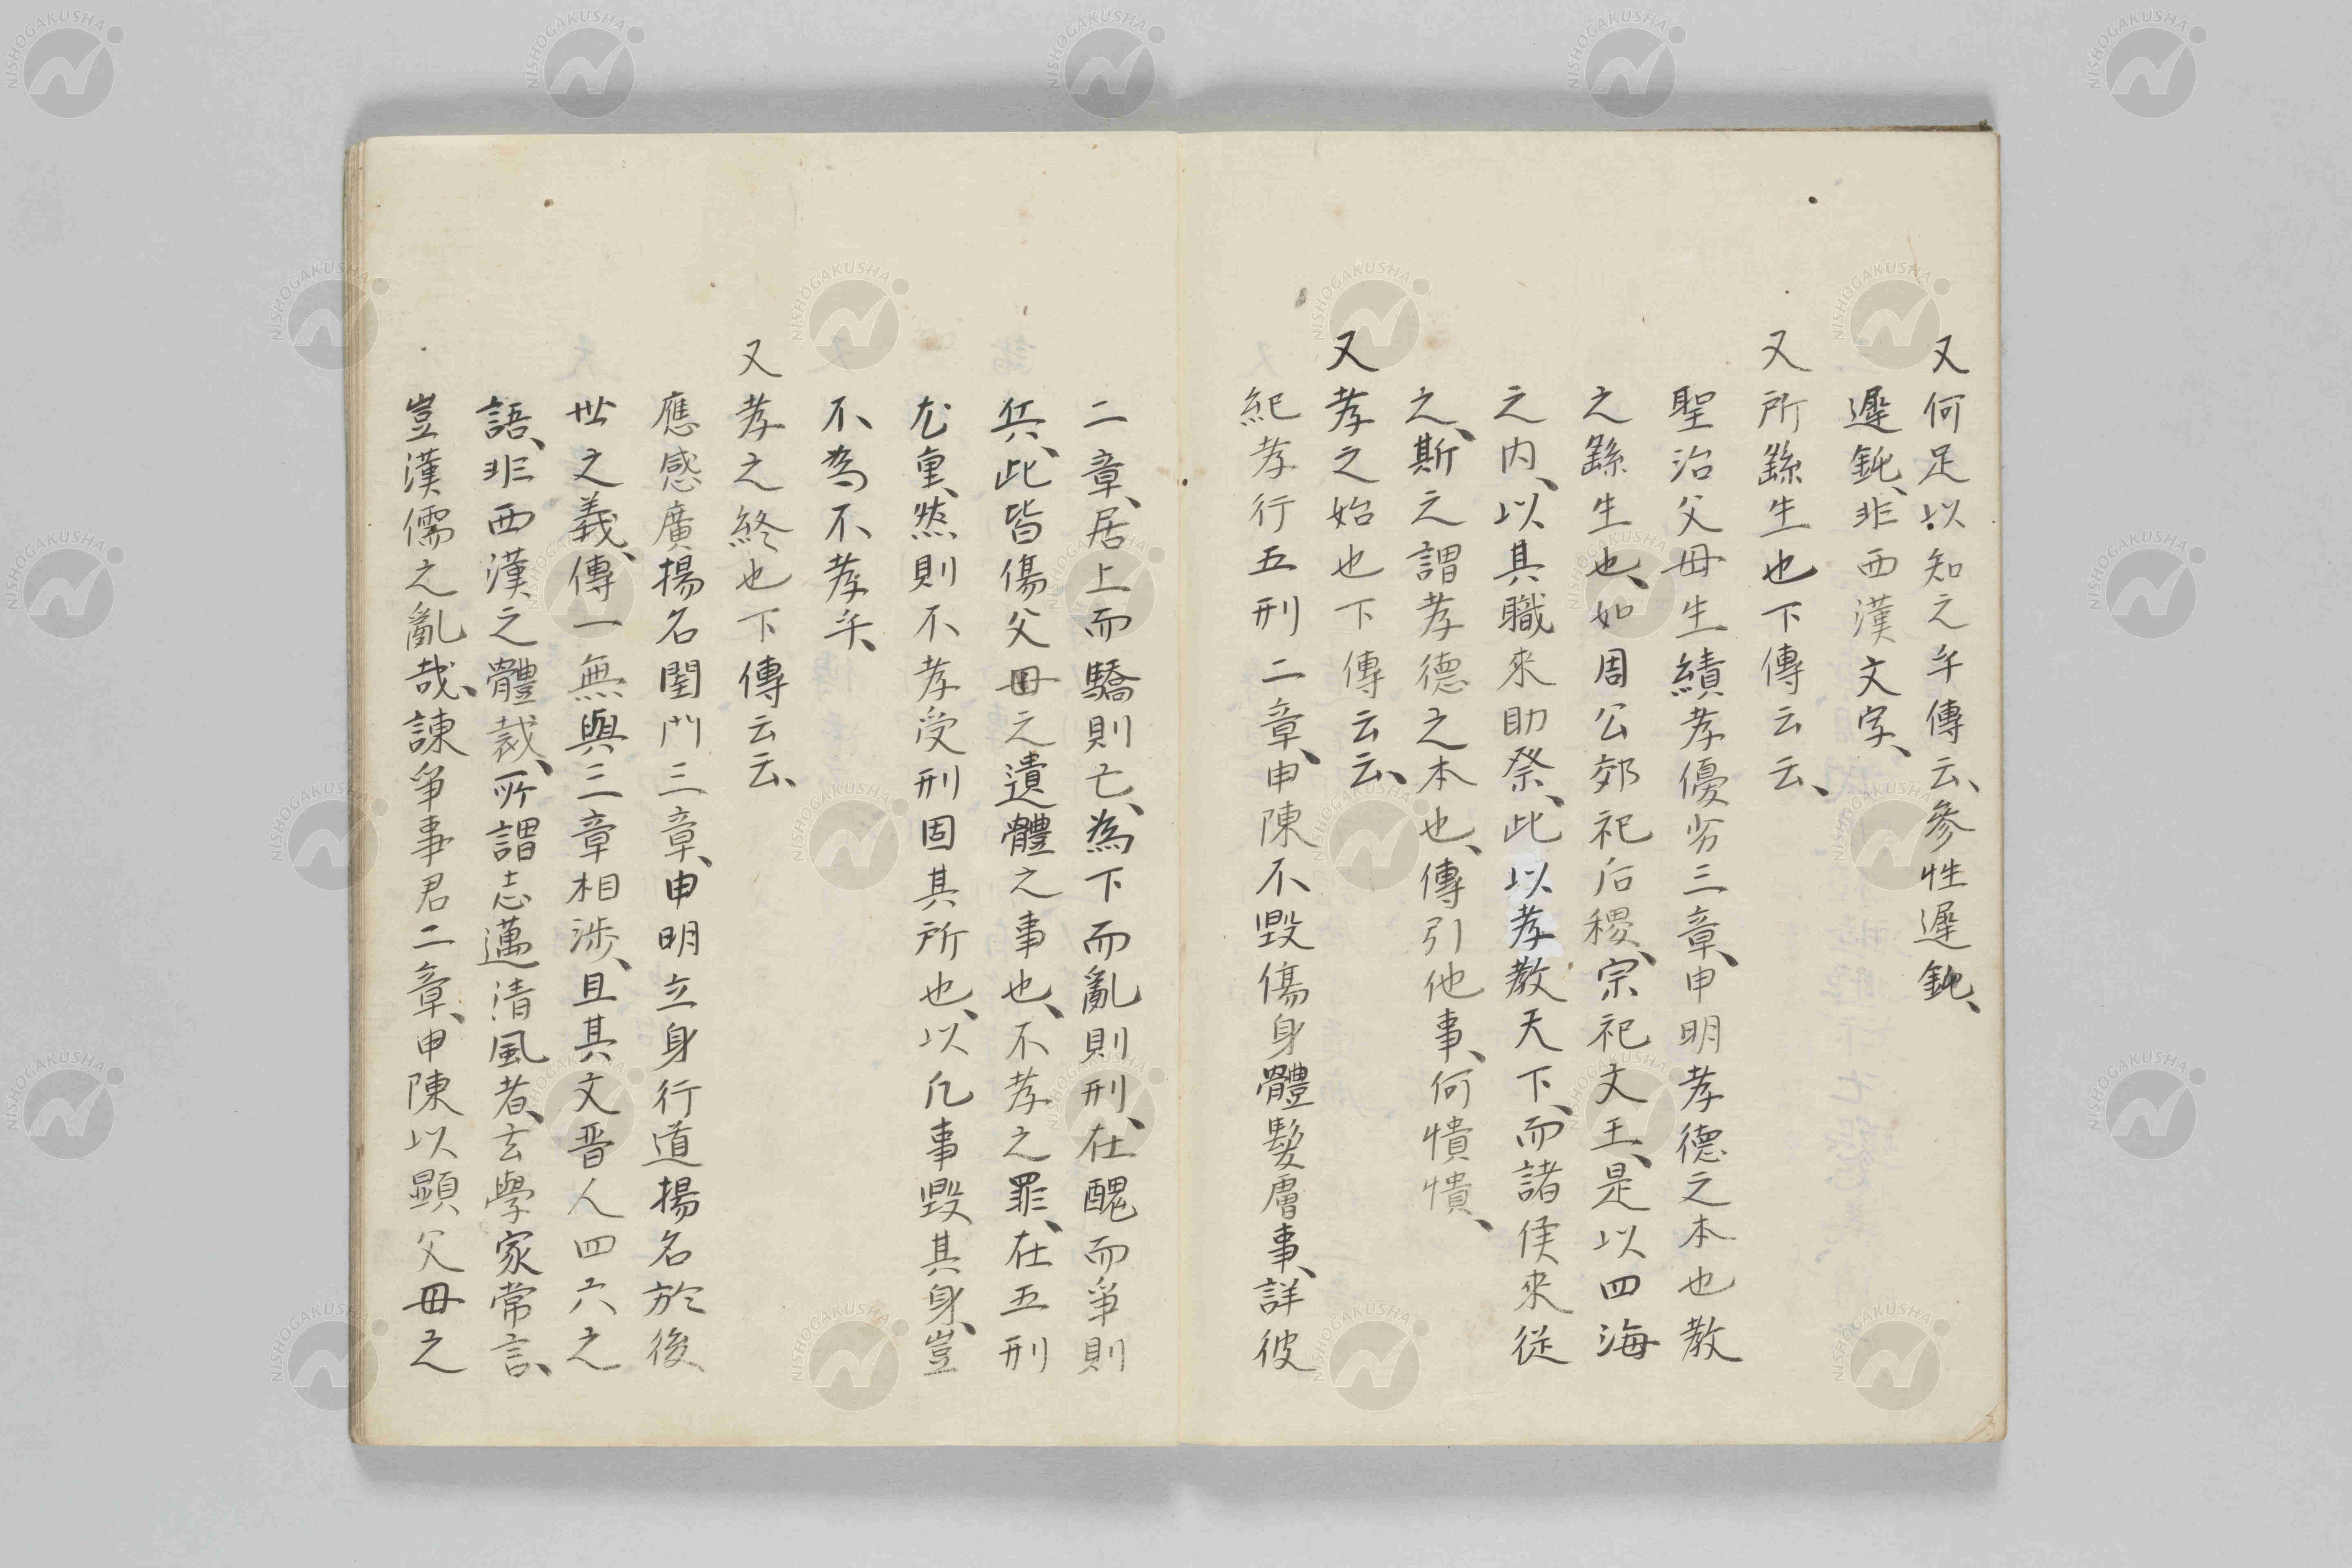 又何足以知之乎傳云、參性遲鈍、
遲鈍、非西漢文字、
又所繇生也下傳云云、
聖治父母生績孝優劣三章、申明孝德之本也教
之繇生也、如周公郊祀后稷、宗祀文王、是以四海
之内、以其職來助祭、此以孝教天下、而諸侯來從
之、斯之謂孝德之本也、傳引他事、何憒憒、
又孝之始也下傳云云、
紀孝行五刑二章、申陳不毀傷身體髮膚事、詳彼
二章、居上而驕則亡、為下而亂則刑、在醜而爭則
兵、此皆傷父母之遺體之事也、不孝之罪、在五刑
尤重、然則不孝受刑固其所也、以凡事毀其身、豈
不為不孝乎、
又孝之終也下傳云云、
應感廣揚名閨門三章、申明立身行道揚名於後
世之義、傳一無與三章相涉、且其文晋人四六之
語、非西漢之體裁、所謂志邁清風者、玄學家常言、
豈漢儒之亂哉、諫爭事君二章、申陳以顯父母之